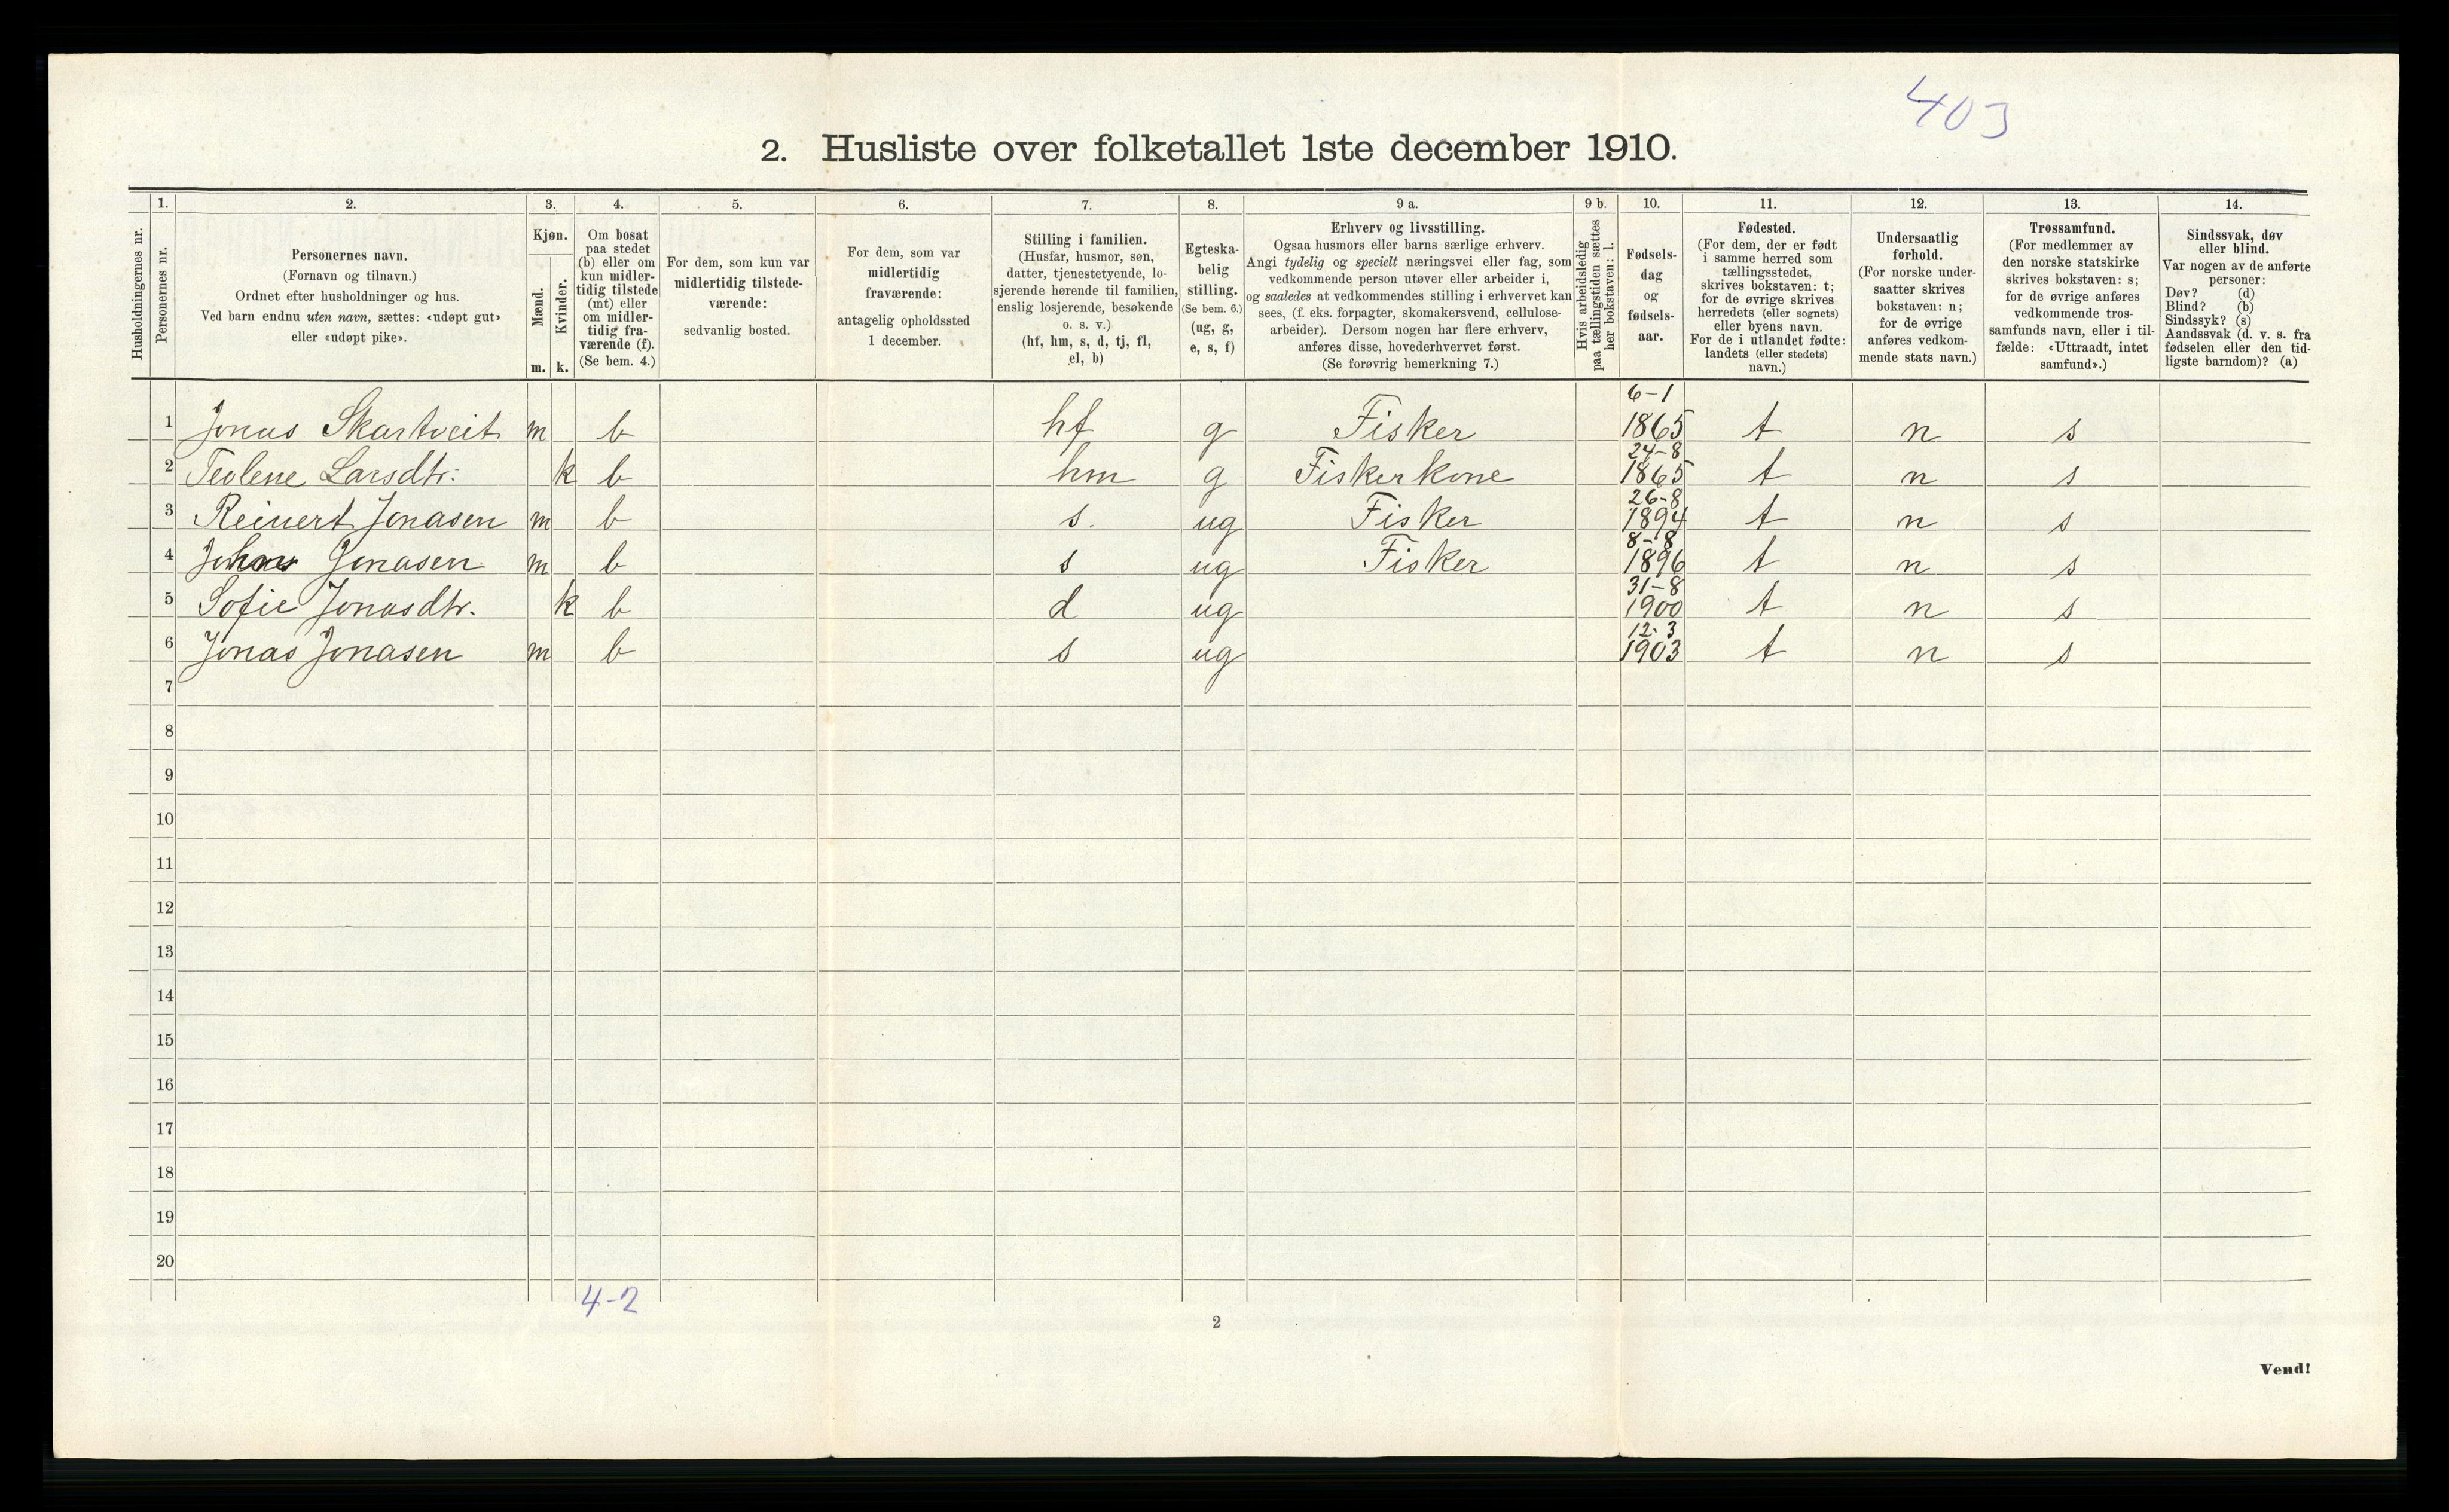 403
2. Husliste over folketallet 1ste december 1910.
Husholdningernes nr.
1.
Personernes nr.
2.
Personernes navn.
(Fornavn og tilnavn.)
Ordnet efter husholdninger og hus.
Ved barn endnu uten navn, sættes: «udøpt gut»
eller «udøpt pike».
3.
Kjøn.
Mænd.
Kvinder.
m. k.
4.
Om bosat
paa stedet
(b) eller om
kun midler-
tidig tilstede
(mt) eller
om midler-
tidig fra-
værende (f).
(Se bem. 4.)
5.
For dem, som kun var
midlertidig tilstede-
værende:
sedvanlig bosted.
6.
For dem, som var
midlertidig
fraværende:
antagelig opholdssted
1 december.
7.
Stilling i familien.
(Husfar, husmor, søn,
datter, tjenestetyende, lo-
sjerende hørende til familien,
enslig losjerende, besøkende
o. s. v.)
(hf, hm, s, d, tj, fl,
el, b)
8.
Egteska-
belig
stilling.
(Se bem. 6.)
(ug, g,
e, s, f)
9 a.
Erhverv og livsstilling.
Ogsaa husmors eller barns særlige erhverv.
Angi tydelig og specielt næringsvei eller fag, som
vedkommende person utøver eller arbeider i,
og saaledes at vedkommendes stilling i erhvervet kan
sees, (f. eks. forpagter, skomakersvend, cellulose-
arbeider). Dersom nogen har flere erhverv,
anføres disse, hovederhvervet først.
(Se forøvrig bemerkning 7.)
9 b.
Hvis arbeidsledig
paa tællingstiden sættes
her bokstaven: l.
10.
Fødsels-
dag
og
fødsels-
aar.
11.
Fødested.
(For dem, der er født
i samme herred som
tællingsstedet,
skrives bokstaven: t;
for de øvrige skrives
herredets (eller sognets)
eller byens navn.
For de i utlandet fødte:
landets (eller stedets)
navn.)
12.
Undersaatlig
forhold.
(For norske under-
saatter skrives
bokstaven: n;
for de øvrige
anføres vedkom-
mende stats navn.)
13.
Trossamfund.
(For medlemmer av
den norske statskirke
skrives bokstaven: s;
for de øvrige anføres
vedkommende tros-
samfunds navn, eller i til-
fælde: «Uttraadt, intet
samfund».)
14.
Sindssvak, døv
eller blind.
Var nogen av de anførte
personer:
Døv? (d)
Blind? (b)
Sindssyk? (s)
Aandssvak (d. v. s. fra
fødselen eller den tid-
ligste barndom)? (a)
1 Jonas Skartveit m b hf g Fisker 6-1 1865 t n s
2 Teolene Larsdtr. k b hm g Fiskerkone 24-8 1865 t n s
3 Reinert Jonasen m b s. ug Fisker 26-8 1894 t n s
4 Jonasen m b s ug Fisker 8-8 1896 t n s
5 Sofie Jonasdtr. k b d ug 31-8 1900 t n s
6 Jonas Jonasen m b s ug 12-3 1903 t n s
7
8
9
10
11
12
13
14
15
16
17
18
19
20
4-2
2
Vend!